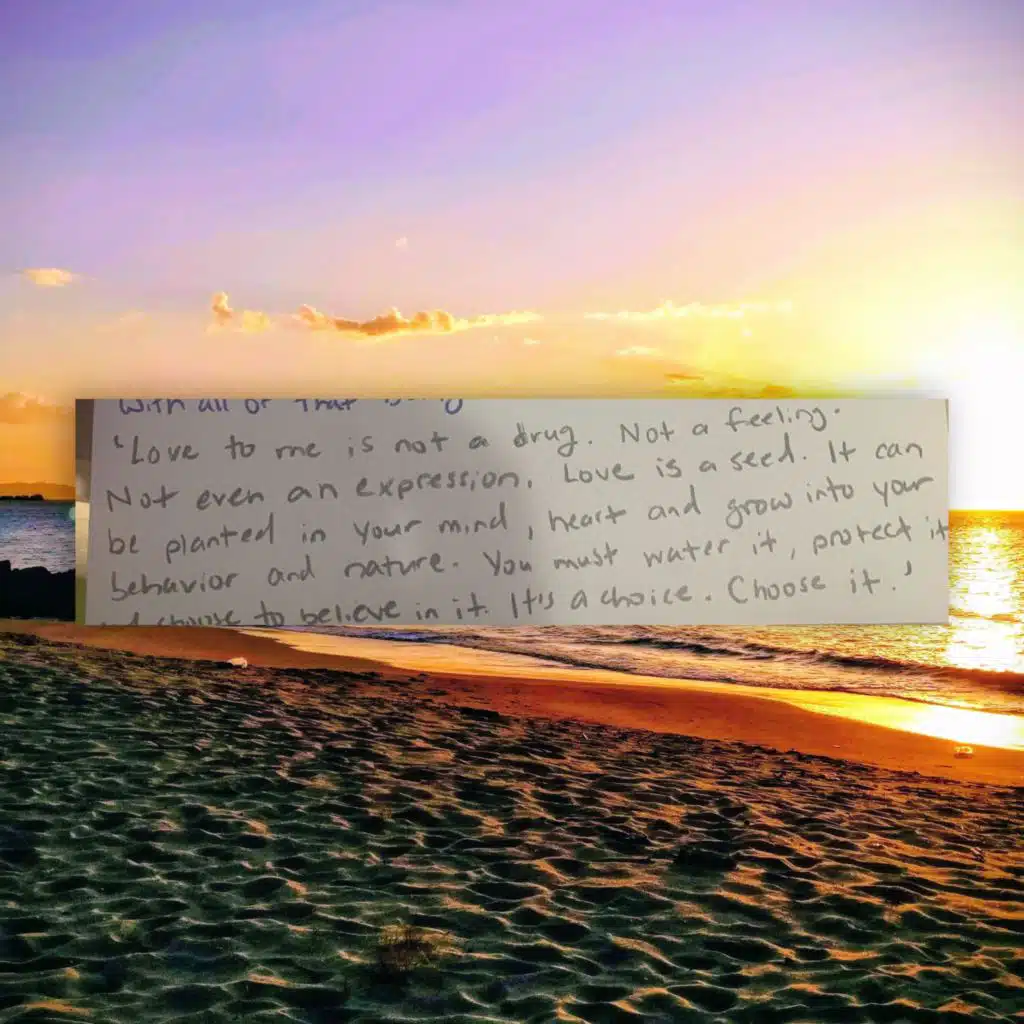 With all of that being
'Love to me is not a drug. Not a feeling.
Not even an expression. Love is a seed. It can
be planted in your mind, heart and grow into your
behavior and nature. You must water it, protect it
choose to believe in it. It's a choice. Choose it.'